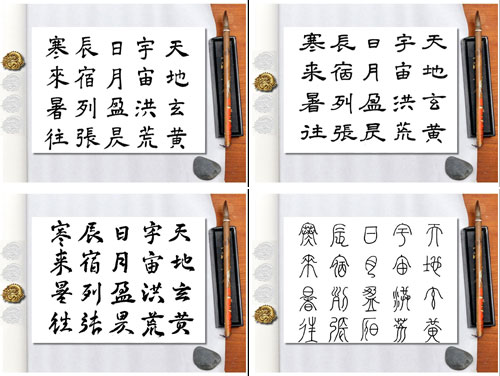 天地玄黄
宇宙洪荒
日月盈昃
辰宿列張
寒來暑往
天地玄黄
宇宙洪荒
日月盈昃
辰宿列張
寒來暑往
天地玄黄
宇宙洪荒
日月盈昃
辰宿列張
寒来暑往
天地玄黄
宇宙洪荒
日月盈昃
辰宿列張
寒來暑往